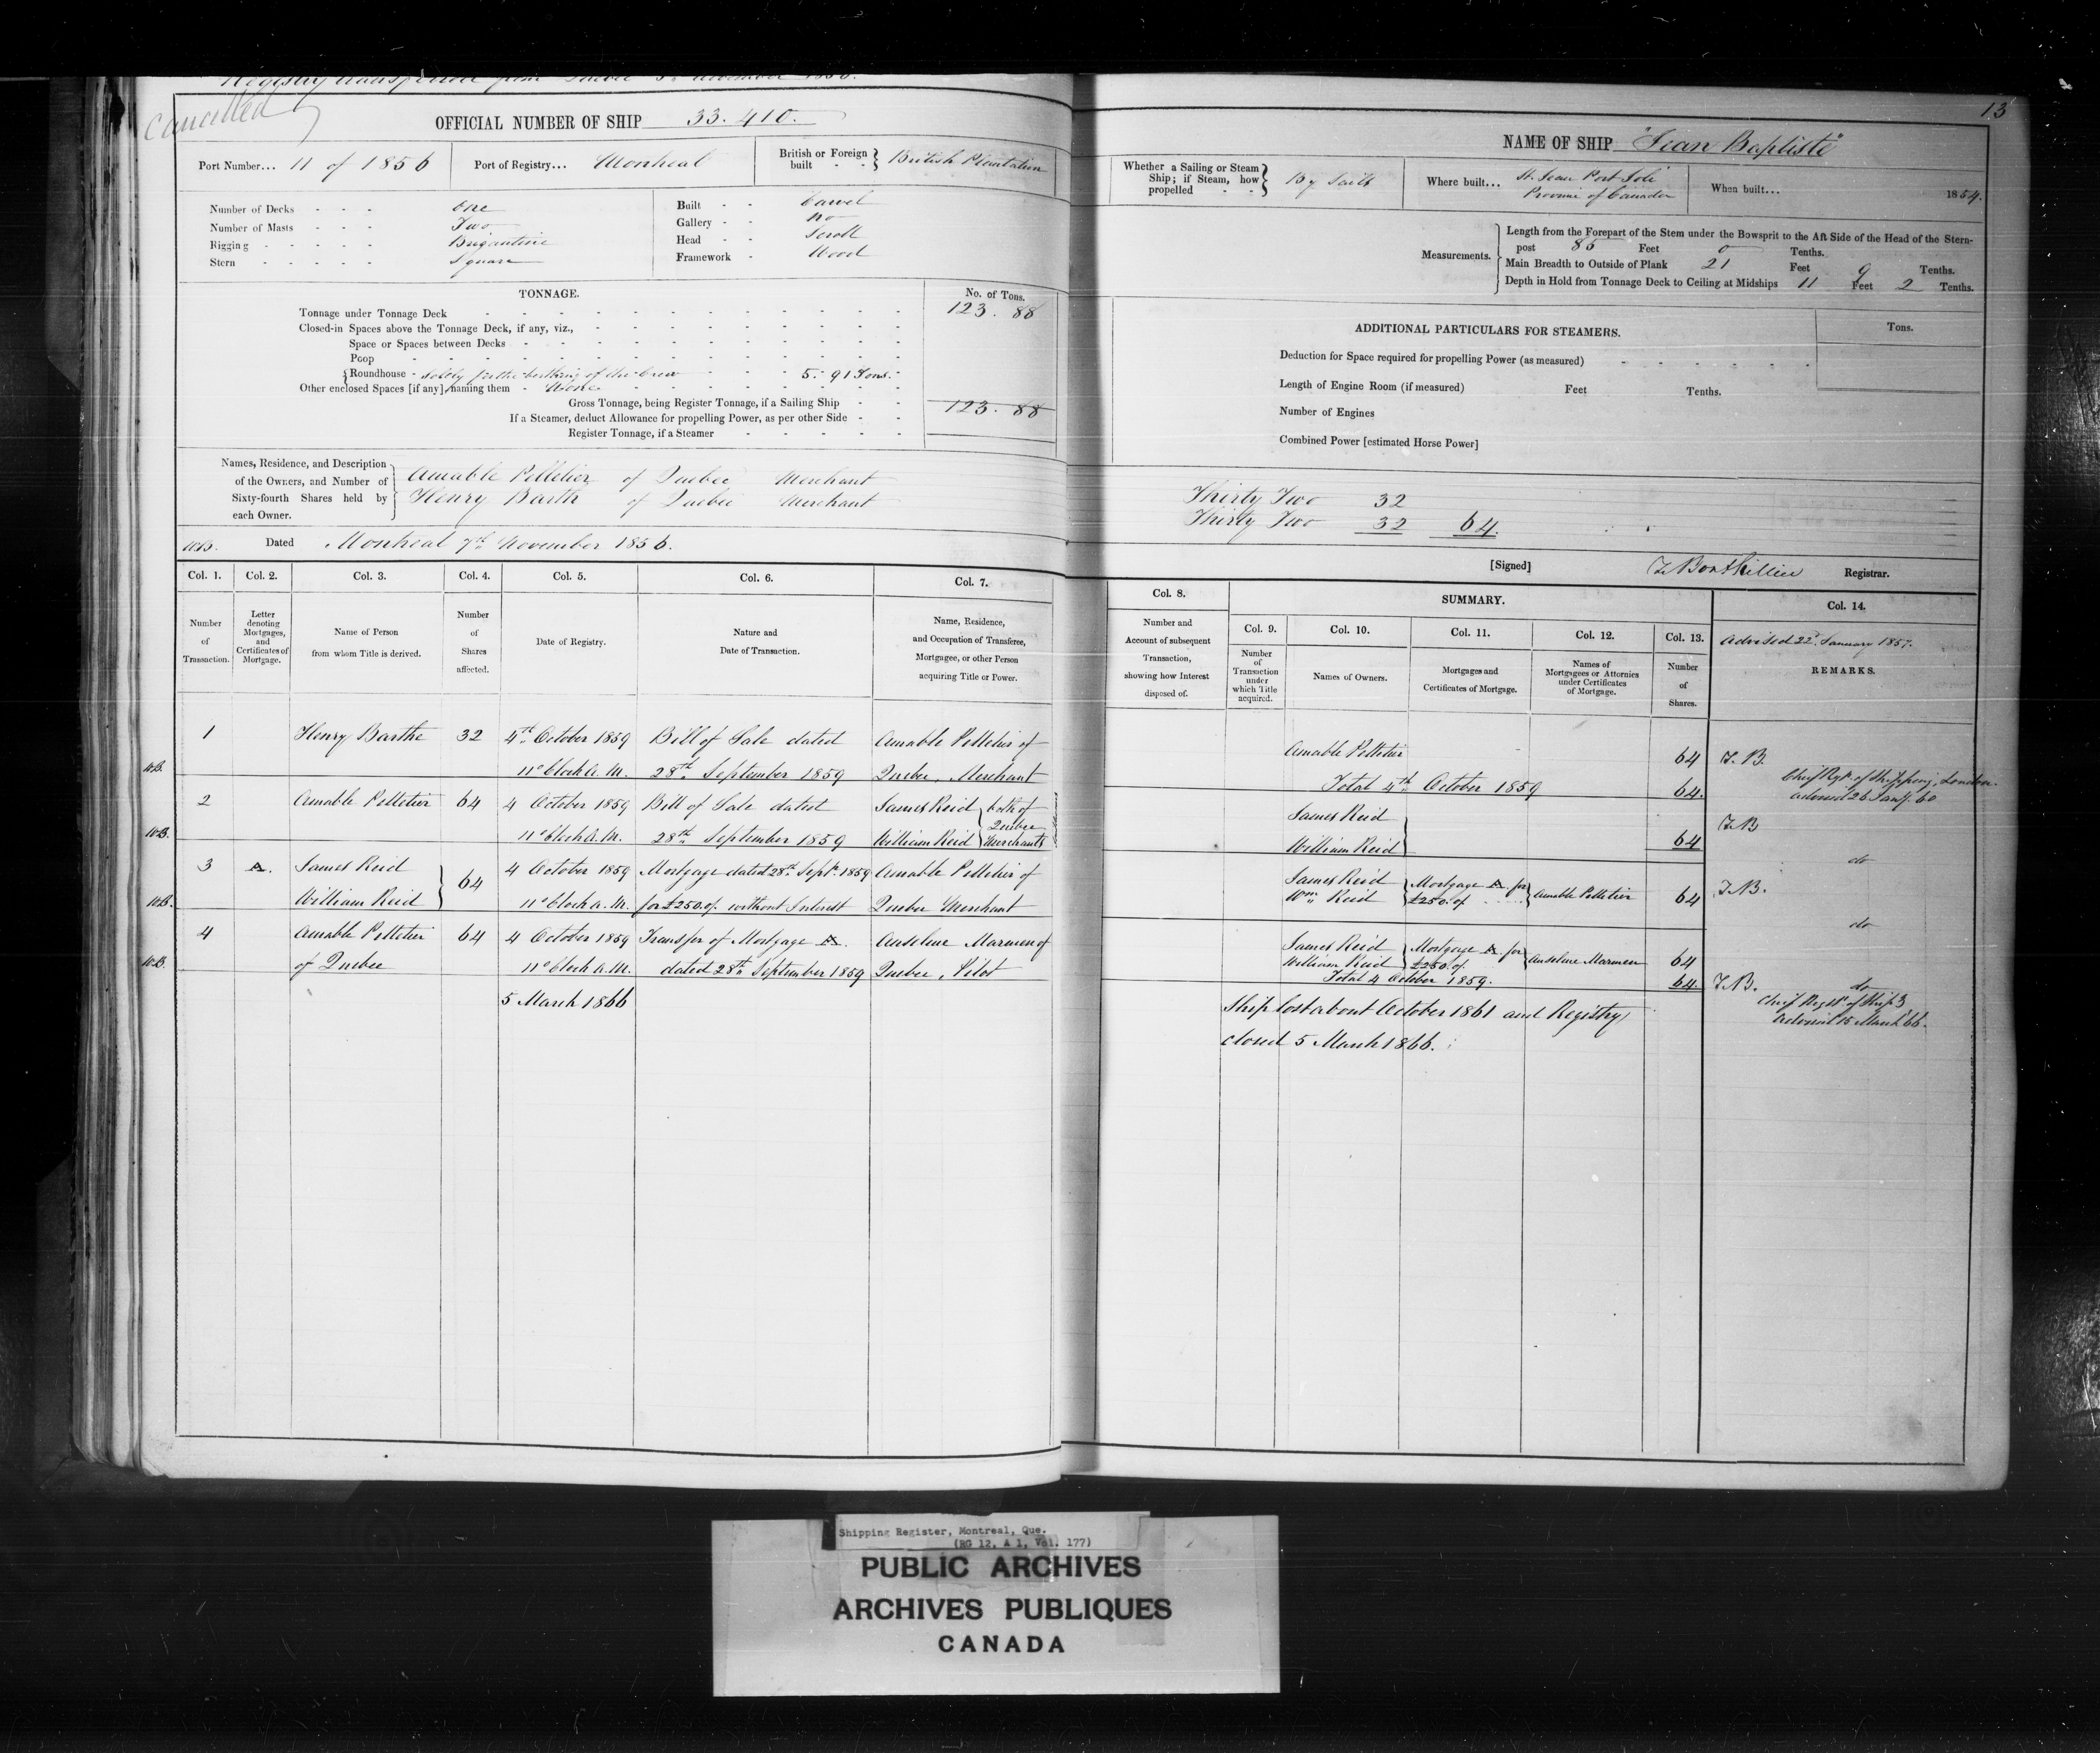 Registry transferred from Quebec November 1856.
Cancelled
OFFICIAL NUMBER OF SHIP 33.410.
Port Number... 11 of 1856
Port of Registry... Montreal
British or Foreign built - - } British Plantation
Number of Decks - - - One
Number of Masts - - - Two
Rigging - - - - - Brigantine
Stern - - - - - Square
Built - - Carvel
Gallery - - No
Head - - Scroll
Framework - Wood
TONNAGE.
No. of Tons.
Tonnage under Tonnage Deck 123. 88
Closed-in Spaces above the Tonnage Deck, if any, viz.,
Space or Spaces between Decks
Poop
Roundhouse - solely for the berthing of the Crew 5.-91 Tons.-
Other enclosed Spaces [if any] naming them - None
Gross Tonnage, being Register Tonnage, if a Sailing Ship 123. 88
If a Steamer, deduct Allowance for propelling Power, as per other Side
Register Tonnage, if a Steamer
Names, Residence, and Description of the Owners, and Number of Sixty-fourth Shares held by each Owner.
Amable Pelletier of Quebec Merchant
Henry Barth of Quebec Merchant
W.B. Dated Montreal 7th November 1856.
Col. 1. Col. 2. Col. 3. Col. 4. Col. 5. Col. 6. Col. 7.
Number of Transaction.
Letter denoting Mortgages, and Certificates of Mortgage.
Name of Person from whom Title is derived.
Number of Shares affected.
Date of Registry.
Nature and Date of Transaction.
Name, Residence, and Occupation of Transferee, Mortgagee, or other Person acquiring Title or Power.
1 Henry Barthe 32 4th October 1859 Bill of Sale dated Amable Pelletier of
W.B. 11 o'clock A.M. 28th September 1859 Quebec, Merchant
2 Amable Pelletier 64 4 October 1859 Bill of Sale dated James Reid } both of Quebec
W.B. 11 o'clock A.M. 28th September 1859 William Reid } Merchants
3 A. James Reid } 64 4 October 1859 Mortgage dated 28th Sept. 1859 Amable Pelletier of
W.B. William Reid } 11 o'clock A.M. for £250. of without Interest Quebec Merchant
4 Amable Pelletier 64 4 October 1859 Transfer of Mortgage A. Anselme Marmen of
W.B. of Quebec 11 o'clock A.M. dated 28th September 1859 Quebec, Pilot
5 March 1866
13
NAME OF SHIP "Jean Baptiste"
Whether a Sailing or Steam Ship; if Steam, how propelled - - } By Sails
Where built... St. Jean Port Joli Province of Canada
When built... 1854.
Measurements.
Length from the Forepart of the Stem under the Bowsprit to the Aft Side of the Head of the Stern-
post 85 Feet 0 Tenths.
Main Breadth to Outside of Plank 21 Feet 9 Tenths.
Depth in Hold from Tonnage Deck to Ceiling at Midships 11 Feet 2 Tenths.
ADDITIONAL PARTICULARS FOR STEAMERS.
Tons.
Deduction for Space required for propelling Power (as measured)
Length of Engine Room (if measured) Feet Tenths.
Number of Engines
Combined Power [estimated Horse Power]
Thirty Two 32
Thirty Two 32 64.
[Signed] Registrar.
Col. 8. SUMMARY. Col. 14.
Col. 9. Col. 10. Col. 11. Col. 12. Col. 13.
Advised 22d January 1857.
REMARKS.
Number and Account of subsequent Transaction, showing how Interest disposed of.
Number of Transaction under which Title acquired.
Names of Owners.
Mortgages and Certificates of Mortgage.
Names of Mortgagees or Attornies under Certificates of Mortgage.
Number of Shares.
Amable Pelletier 64 T.B.
Total 4th October 1859 64. Chief Regr. of Shipping, London.
advised 26 Jany. 60
James Reid }
William Reid } 64 T.B
do
James Reid } Mortgage A. for } Amable Pelletier 64 T.B.
Wm. Reid } £250. of
do
James Reid } Mortgage A. for } Anselme Marmen 64
William Reid } £250. of
Total 4 October 1859. 64. T.B. do
Ship lost about October 1861 and Registry
closed 5 March 1866.
Chief Regstr of Ship
advised 15 March 66.
Shipping Register, Montreal, Que.
(RG 12, A 1, Vol. 177)
PUBLIC ARCHIVES
ARCHIVES PUBLIQUES
CANADA